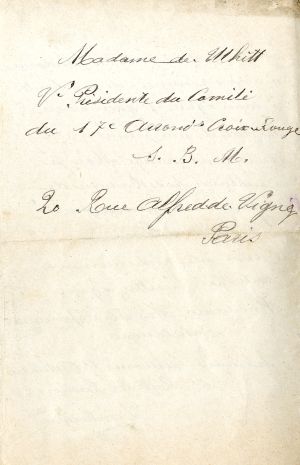 Madame de Whitt
Vce Présidente du Comité
du 17e Arrondt Croix Rouge
S. B. M.
20 Rue Alfred de Vigny
Paris